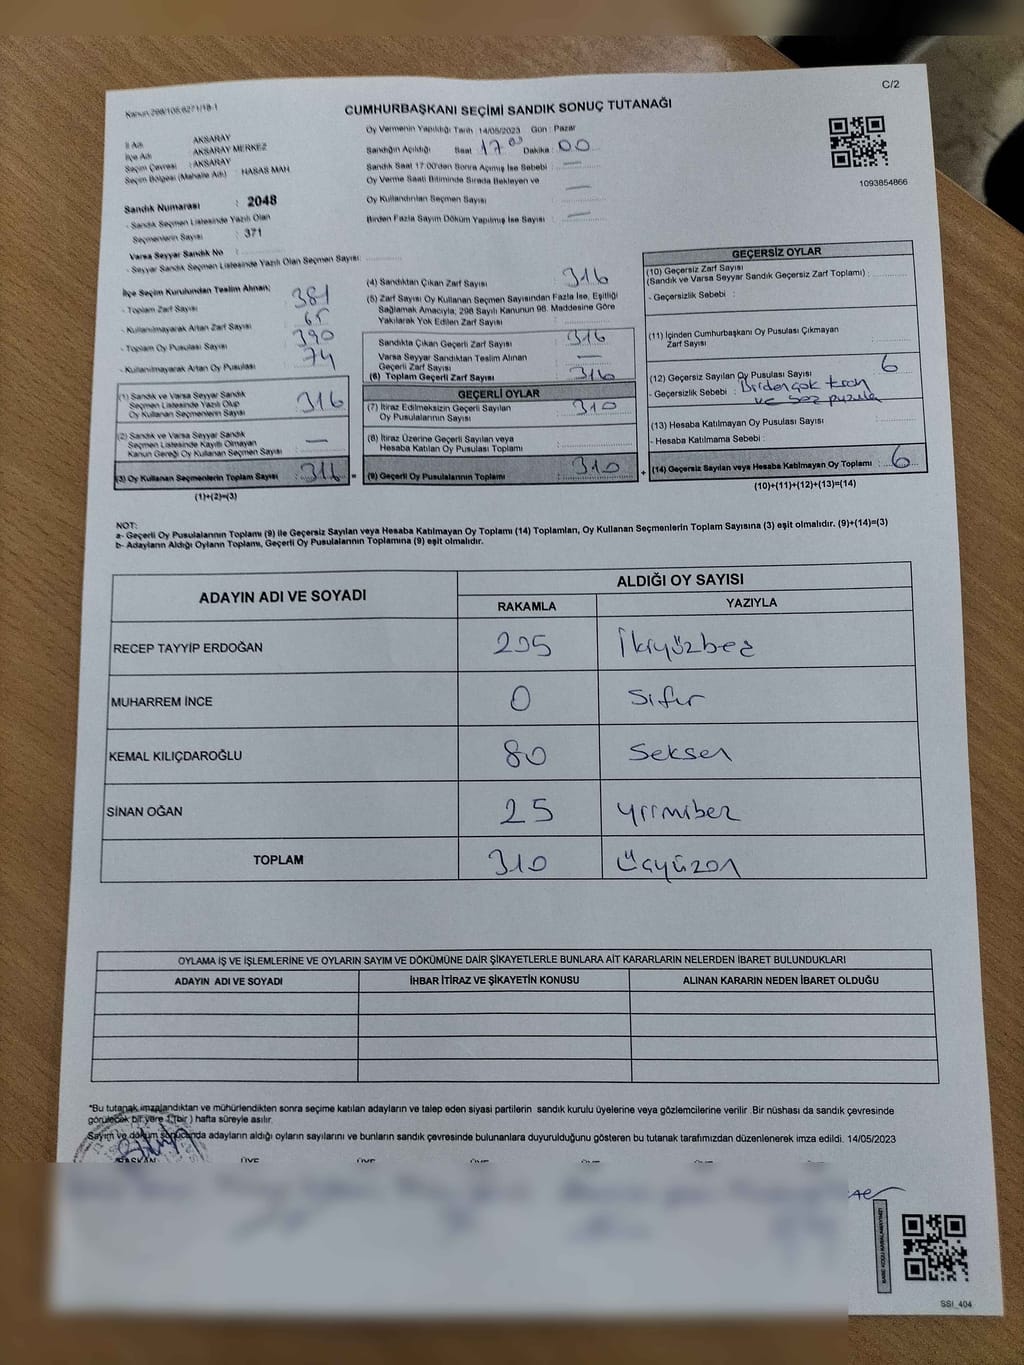 C/2
Kanun:298/106,6271/18-1
CUMHURBAŞKANI SEÇİMİ SANDIK SONUÇ TUTANAĞI
1093854866
İl Adı : AKSARAY
İlçe Adı : AKSARAY MERKEZ
Seçim Çevresi : AKSARAY
Seçim Bölgesi (Mahalle Adı) : HASAS MAH
Sandık Numarası : 2048
- Sandık Seçmen Listesinde Yazılı Olan
Seçmenlerin Sayısı : 371
Varsa Seyyar Sandık No :
- Seyyar Sandık Seçmen Listesinde Yazılı Olan Seçmen Sayısı:
Oy Vermenin Yapıldığı Tarih : 14/05/2023 Gün : Pazar
Sandığın Açıldığı Saat 17 00 Dakika : 00
Sandık Saat 17.00'den Sonra Açılmış İse Sebebi : —
Oy Verme Saati Bitiminde Sırada Bekleyen ve
Oy Kullandırılan Seçmen Sayısı : —
Birden Fazla Sayım Döküm Yapılmış İse Sayısı : —
İlçe Seçim Kurulundan Teslim Alınan;
- Toplam Zarf Sayısı : 381
- Kullanılmayarak Artan Zarf Sayısı : 65
- Toplam Oy Pusulası Sayısı : 390
- Kullanılmayarak Artan Oy Pusulası : 74
(1) Sandık ve Varsa Seyyar Sandık
Seçmen Listesinde Yazılı Olup
Oy Kullanan Seçmenlerin Sayısı : 316
(2) Sandık ve Varsa Seyyar Sandık
Seçmen Listesinde Kayıtlı Olmayan
Kanun Gereği Oy Kullanan Seçmen Sayısı : —
(3) Oy Kullanan Seçmenlerin Toplam Sayısı : 316 =
(1)+(2)=(3)
(4) Sandıktan Çıkan Zarf Sayısı : 316
(5) Zarf Sayısı Oy Kullanan Seçmen Sayısından Fazla İse, Eşitliği
Sağlamak Amacıyla; 298 Sayılı Kanunun 98. Maddesine Göre
Yakılarak Yok Edilen Zarf Sayısı :
Sandıkta Çıkan Geçerli Zarf Sayısı : 316
Varsa Seyyar Sandıktan Teslim Alınan
Geçerli Zarf Sayısı : —
(6) Toplam Geçerli Zarf Sayısı : 316
GEÇERLİ OYLAR
(7) İtiraz Edilmeksizin Geçerli Sayılan
Oy Pusulalarının Sayısı : 310
(8) İtiraz Üzerine Geçerli Sayılan veya
Hesaba Katılan Oy Pusulası Toplamı :
(9) Geçerli Oy Pusulalarının Toplamı : 310 +
GEÇERSİZ OYLAR
(10) Geçersiz Zarf Sayısı
(Sandık ve Varsa Seyyar Sandık Geçersiz Zarf Toplamı) :
- Geçersizlik Sebebi :
(11) İçinden Cumhurbaşkanı Oy Pusulası Çıkmayan
Zarf Sayısı :
(12) Geçersiz Sayılan Oy Pusulası Sayısı : 6
- Geçersizlik Sebebi : Birden çok
ve
(13) Hesaba Katılmayan Oy Pusulası Sayısı :
- Hesaba Katılmama Sebebi :
(14) Geçersiz Sayılan veya Hesaba Katılmayan Oy Toplamı : 6
(10)+(11)+(12)+(13)=(14)
NOT:
a- Geçerli Oy Pusulalarının Toplamı (9) ile Geçersiz Sayılan veya Hesaba Katılmayan Oy Toplamı (14) Toplamları, Oy Kullanan Seçmenlerin Toplam Sayısına (3) eşit olmalıdır. (9)+(14)=(3)
b- Adayların Aldığı Oyların Toplamı, Geçerli Oy Pusulalarının Toplamına (9) eşit olmalıdır.
ADAYIN ADI VE SOYADI ALDIĞI OY SAYISI
RAKAMLA YAZIYLA
RECEP TAYYİP ERDOĞAN 205 İkiyüzbeş
MUHARREM İNCE 0 Sıfır
KEMAL KILIÇDAROĞLU 80 Seksen
SİNAN OĞAN 25 yirmibeş
TOPLAM 310 Üçyüzon
OYLAMA İŞ VE İŞLEMLERİNE VE OYLARIN SAYIM VE DÖKÜMÜNE DAİR ŞİKAYETLERLE BUNLARA AİT KARARLARIN NELERDEN İBARET BULUNDUKLARI
ADAYIN ADI VE SOYADI İHBAR İTİRAZ VE ŞİKAYETİN KONUSU ALINAN KARARIN NEDEN İBARET OLDUĞU
*Bu tutanak imzalandıktan ve mühürlendikten sonra seçime katılan adayların ve talep eden siyasi partilerin sandık kurulu üyelerine veya gözlemcilerine verilir .Bir nüshası da sandık çevresinde
görülecek bir yere 1 (bir) hafta süreyle asılır.
Sayım ve döküm sonucunda adayların aldığı oyların sayılarını ve bunların sandık çevresinde bulunanlara duyurulduğunu gösteren bu tutanak tarafımızdan düzenlenerek imza edildi. 14/05/2023
BAŞKAN ÜYE ÜYE ÜYE ÜYE ÜYE ÜYE
SSI_404